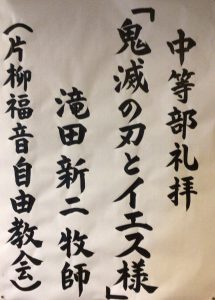 中等部礼拝
「鬼滅の刃とイエス様」
滝田新二牧師
（片柳福音自由教会）